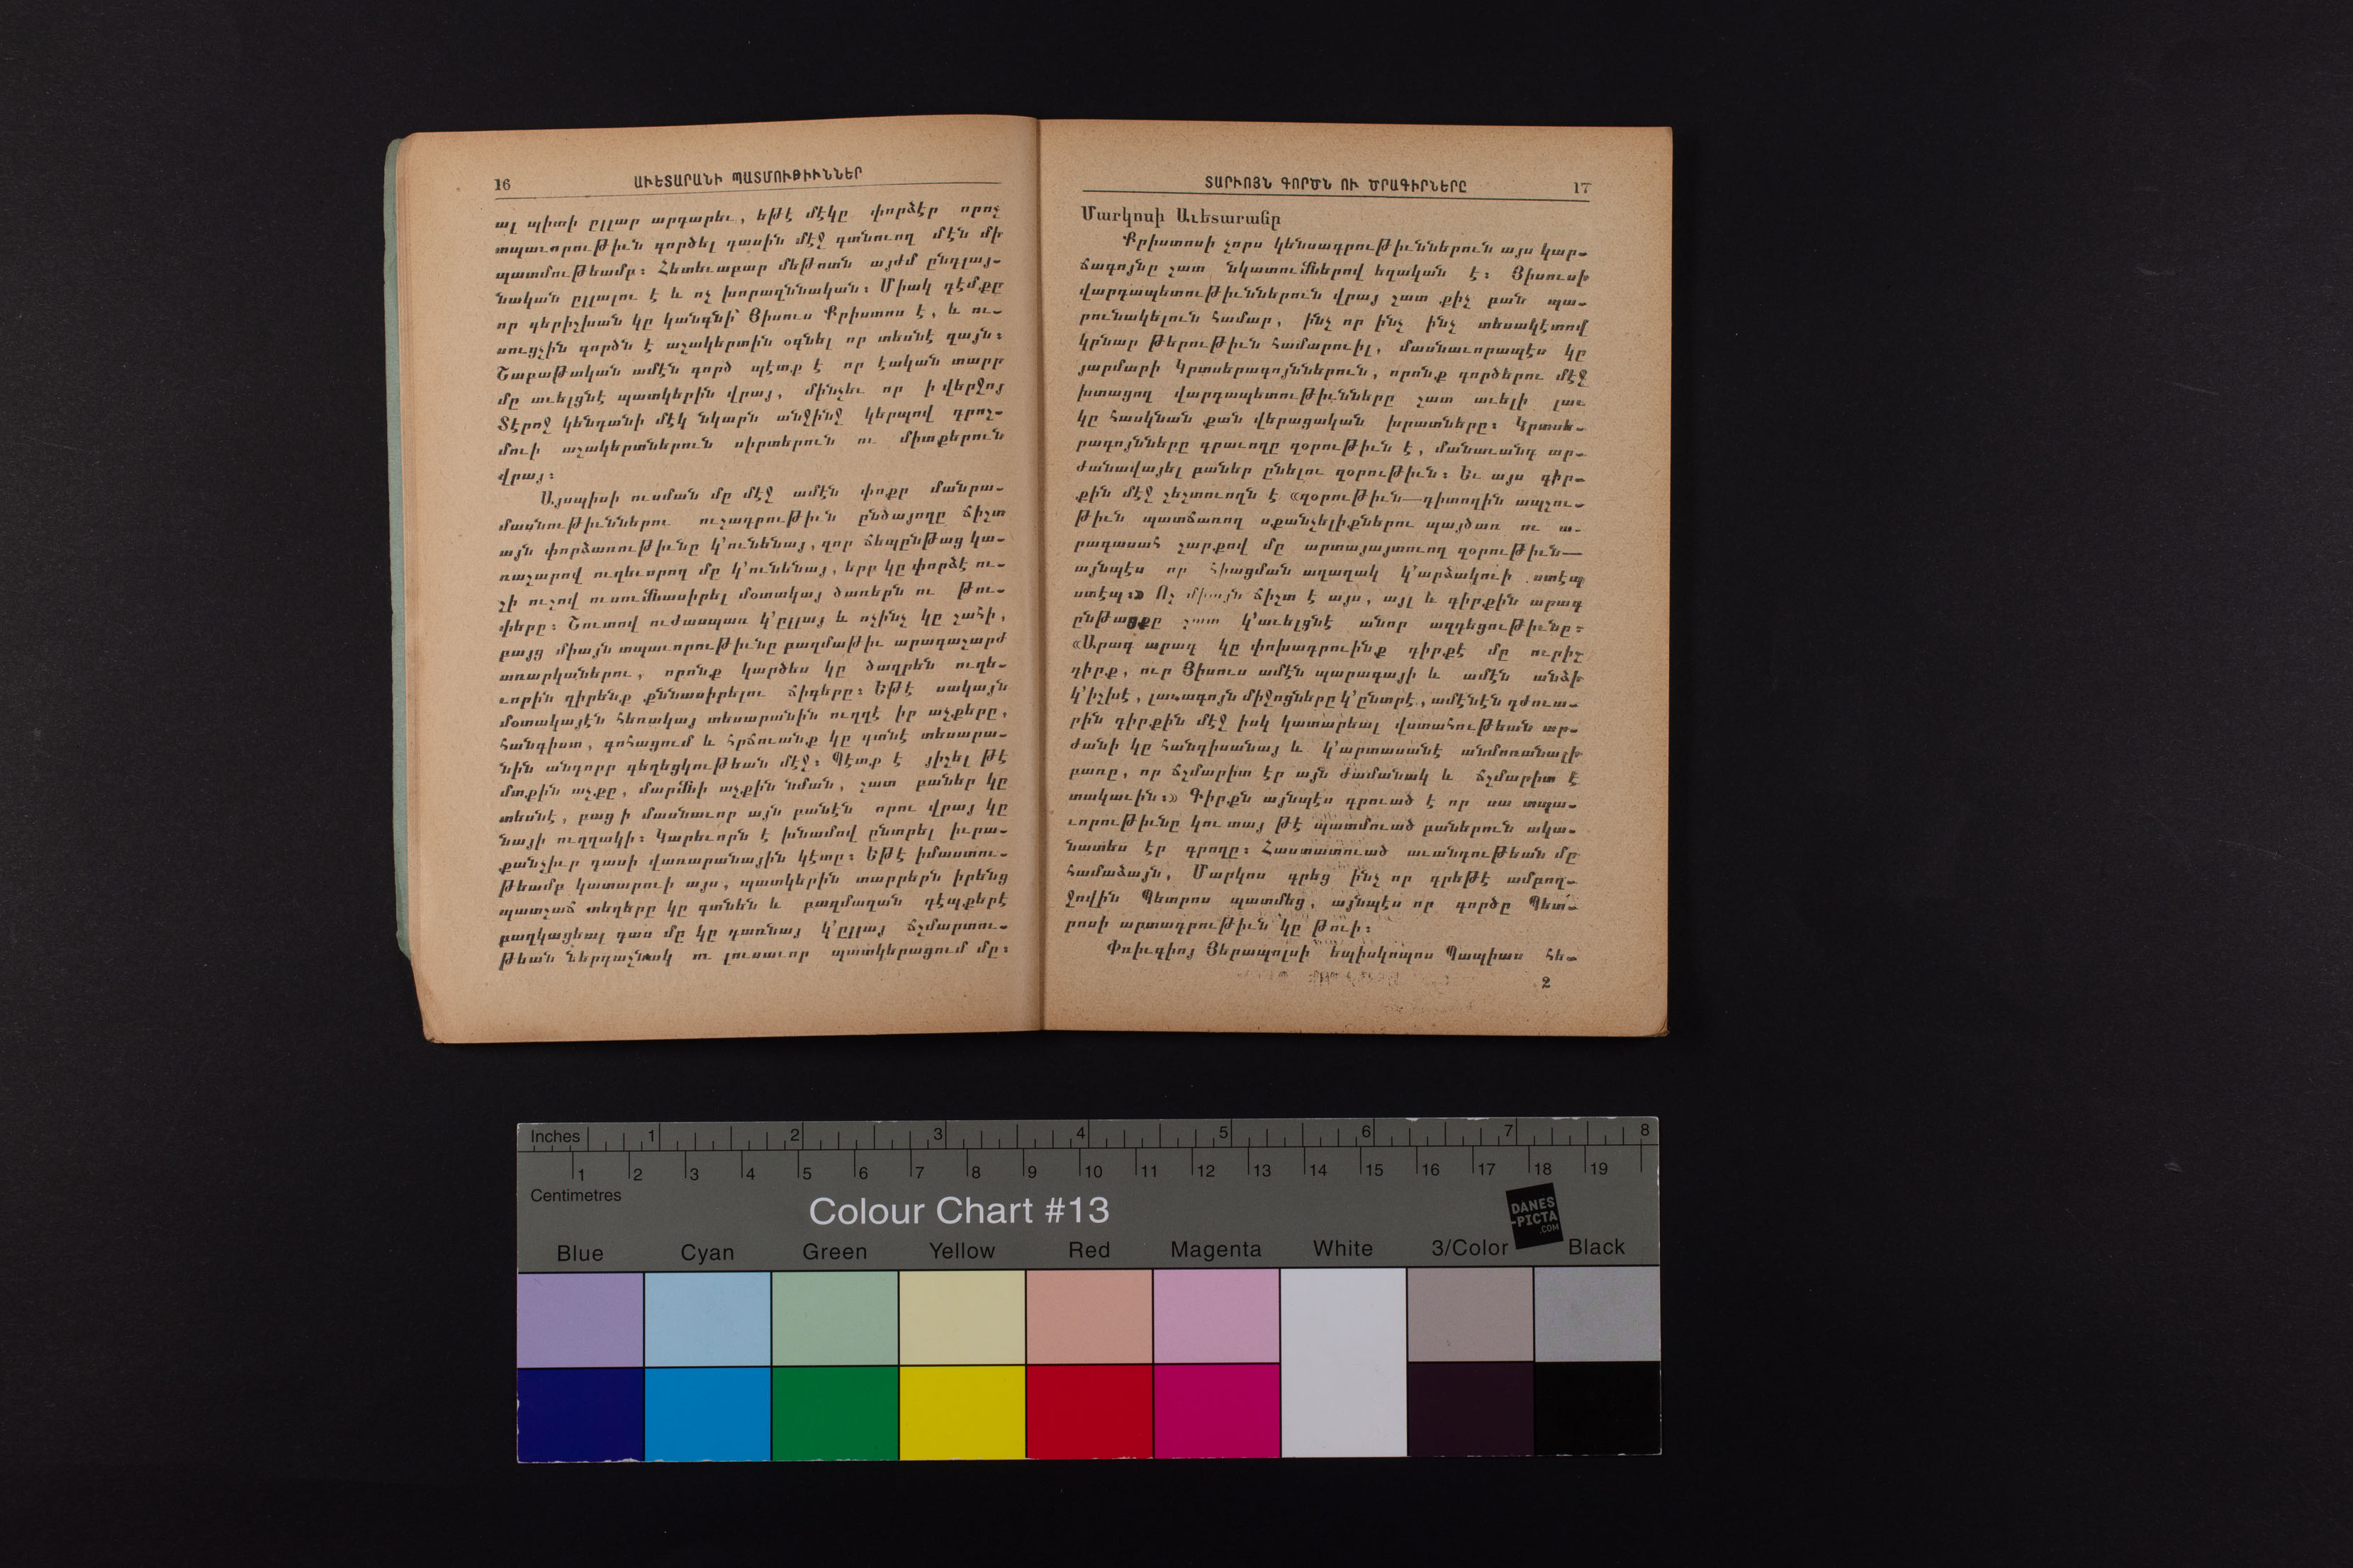 16
ԱՒԵՏԱՐԱՆԻ ՊԱՏՄՈՒԹԻՒՆՆԵՐ
ալ պիտի ըլլար արդարեւ, եթէ մէկը փորձէր որոշ
տպաւորութիւն գործել դասին մէջ գտնուող մէն մի
պատմութեամբ։ Հետեւաբար մեթոտն այժմ ընդլայ-
նական ըլլալու է և ոչ խորազննական։ Միակ դէմքը
որ գերիշխան կը կանգնի՝ Յիսուս Քրիստոս է, և ու-
սուցչին գործն է աշակերտին օգնել որ տեսնէ զայն։
Շաբաթական ամէն գործ պէտք է որ էական տարր
մը աւելցնէ պատկերին վրայ, մինչեւ որ ի վերջոյ
Տէրոջ կենդանի մէկ նկարն անջինջ կերպով դրոշ-
մուի աշակերտներուն սիրտերուն ու միտքերուն
վրայ։
Այսպիսի ուսման մը մէջ ամէն փոքր մանրա-
մասնութիւններու ուշադրութիւն ընծայողը ճիշտ
այն փորձառութիւնը կ՚ունենայ, զոր ճեպընթաց կա-
ռաշարով ուղեւորող մը կ՚ունենայ, երբ կը փորձէ ու-
շի ուշով ուսումնասիրել մօտակայ ծառերն ու թու-
փերը։ Շուտով ուժասպառ կ՚ըլլայ և ոչինչ կը շահի,
բայց միայն տպաւորութիւնը բազմաթիւ արագաշարժ
առարկաներու, որոնք կարծես կը ծաղրեն ուղե-
ւորին զիրենք քննասիրելու ճիգերը։ Եթէ սակայն
մօտակայէն հեռակայ տեսարանին ուղղէ իր աչքերը,
հանգիստ, գոհացում և հրճուանք կը գտնէ տեսարա-
նին անդորր գեղեցկութեան մէջ։ Պէտք է յիշել թէ
մտքին աչքը, մարմնի աչքին նման, շատ բաներ կը
տեսնէ, բաց ի մասնաւոր այն բանէն որու վրայ կը
նայի ուղղակի։ Կարեւորն է խնամով ընտրել իւրա-
քանչիւր դասի վառարանային կէտը։ Եթէ իմաստու-
թեամբ կատարուի այս, պատկերին տարրերն իրենց
պատշաճ տեղերը կը գտնեն և բազմազան դէպքերէ
բաղկացեալ դաս մը կը դառնայ կ՚ըլլայ ճշմարտու-
թեան ներդաշնակ ու լուսաւոր պատկերացում մը։
ՏԱՐԻՈՅՆ ԳՈՐԾՆ ՈՒ ԾՐԱԳԻՐՆԵՐԸ
17
Մարկոսի Աւետարանը
Քրիստոսի չորս կենսագրութիւններուն այս կար-
ճագոյնը շատ նկատումներով եզական է։ Յիսուսի
վարդապետութիւններուն վրայ շատ քիչ բան պա-
րունակելուն համար, ինչ որ ինչ ինչ տեսակէտով
կրնար թերութիւն համարուիլ, մասնաւորապէս կը
յարմարի Կրտսերագոյններուն, որոնք գործերու մէջ
խտացող վարդապետութիւնները շատ աւելի լաւ
կը հասկնան քան վերացական խրատները։ Կրտսե-
րագոյնները գրաւողը զօրութիւն է, մանաւանդ ար-
ժանավայել բաներ ընելու զօրութիւն։ Եւ այս գիր-
քին մէջ շեշտուողն է «զօրութիւն—դիտողին ապշու-
թիւն պատճառող սքանչելիքներու պայծառ ու ա-
րագասահ շարքով մը արտայայտուող զօրութիւն—
այնպէս որ հիացման աղաղակ կ՚արձակուի ստէպ
ստէպ։» Ոչ միայն ճիշտ է այս, այլ և գիրքին արագ
ընթացքը շատ կ՚աւելցնէ անոր ազդեցութիւնը։
«Արագ արագ կը փոխադրուինք դիրքէ մը ուրիշ
դիրք, ուր Յիսուս ամէն պարագայի և ամէն անձի
կ՚իշխէ, լաւագոյն միջոցները կ՚ընտրէ, ամէնէն դժուա-
րին դիրքին մէջ իսկ կատարեալ վստահութեան ար-
ժանի կը հանդիսանայ և կ՚արտասանէ անմոռանալի
բառը, որ ճշմարիտ էր այն ժամանակ և ճշմարիտ է
տակաւին։» Գիրքն այնպէս գրուած է որ սա տպա-
ւորութիւնը կու տայ թէ պատմուած բաներուն ակա-
նատես էր գրողը։ Հաստատուած աւանդութեան մը
համաձայն, Մարկոս գրեց ինչ որ գրեթէ ամբող-
ջովին Պետրոս պատմեց, այնպէս որ գործը Պետ-
րոսի արտադրութիւն կը թուի։
Փռիւգիոյ Յերապոլսի եպիսկոպոս Պապիաս հե-
2
Inches 1 2 3 4 5 6 7 8
1 2 3 4 5 6 7 8 9 10 11 12 13 14 15 16 17 18 19
Centimetres
Colour Chart #13
DANES
-PICTA
.COM
Blue Cyan Green Yellow Red Magenta White 3/Color Black